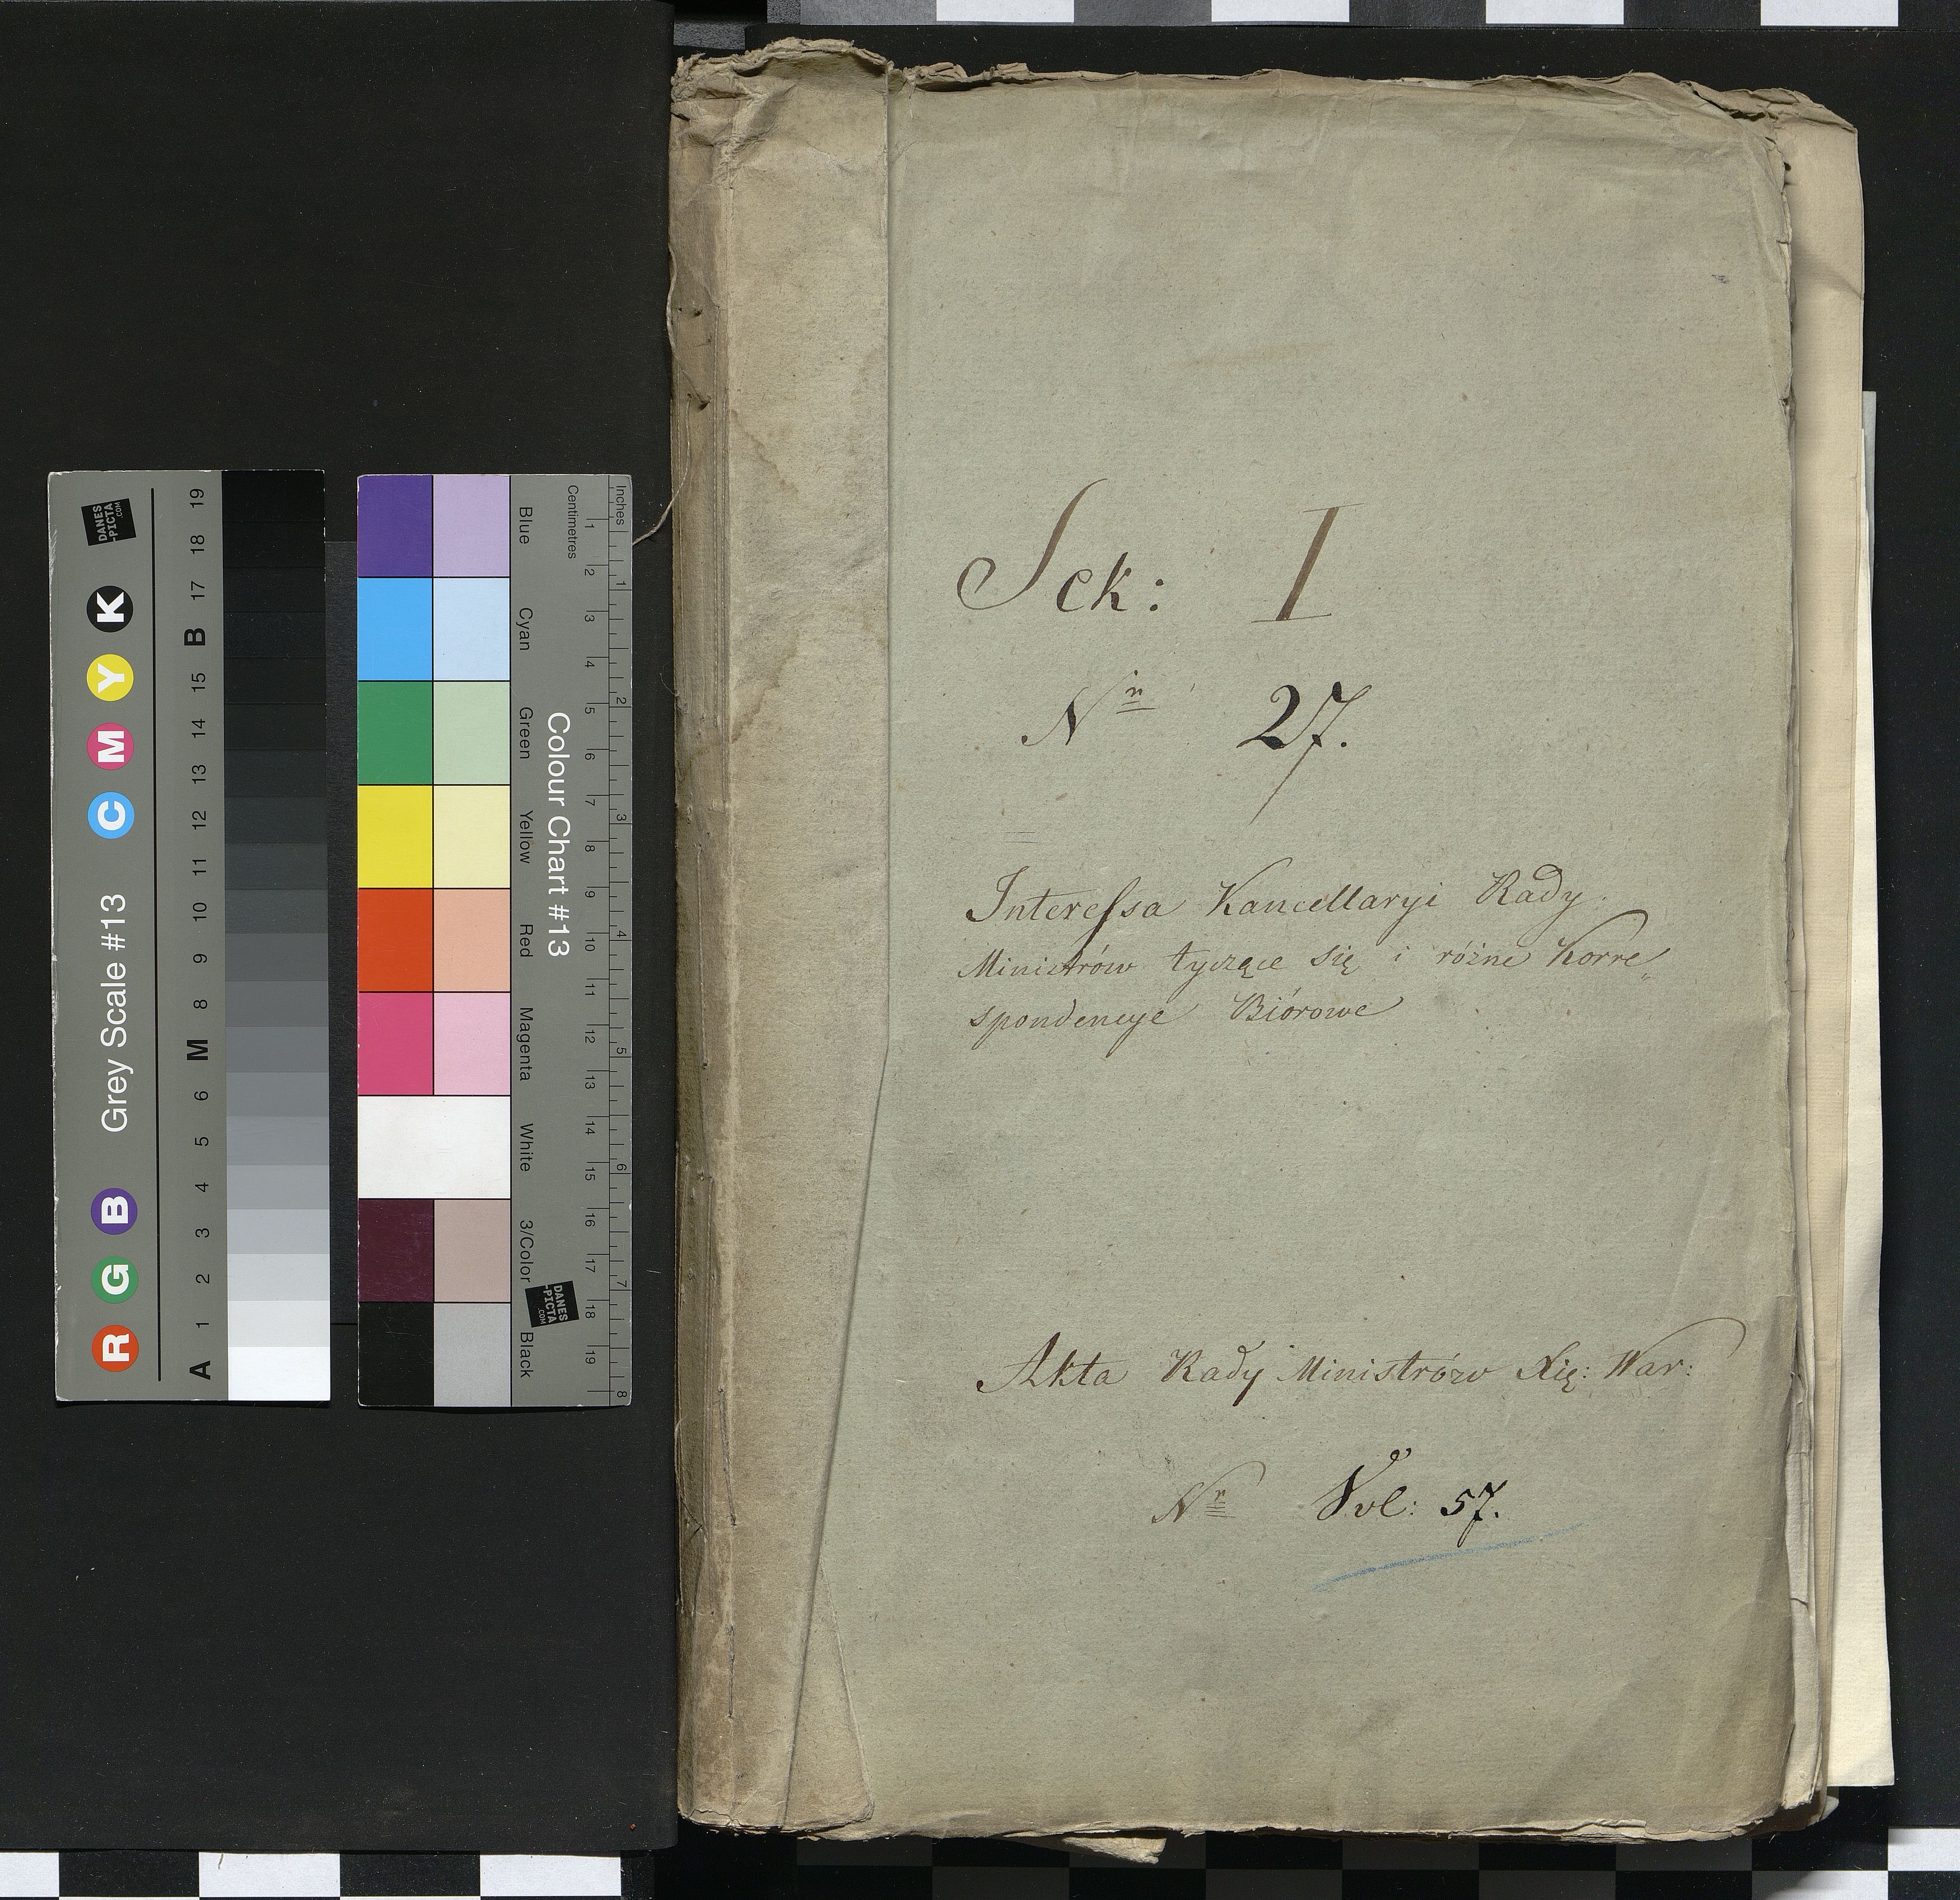 Sek: I
Nr 27.
Interessa Kancellaryi Rady
Ministrów tyczące się i różne Korre„
spondencye Biórowe
Akta Rady Ministrów Xię: War:
Nr Vol: 57.
Grey Scale #13
R G B C M Y K
DANES-PICTA.COM
A 1 2 3 4 5 6 M 8 9 10 11 12 13 14 15 B 17 18 19
Colour Chart #13
Blue Cyan Green Yellow Red Magenta White 3/Color Black
DANES-PICTA.COM
Centimetres 1 2 3 4 5 6 7 8 9 10 11 12 13 14 15 16 17 18 19
Inches 1 2 3 4 5 6 7 8